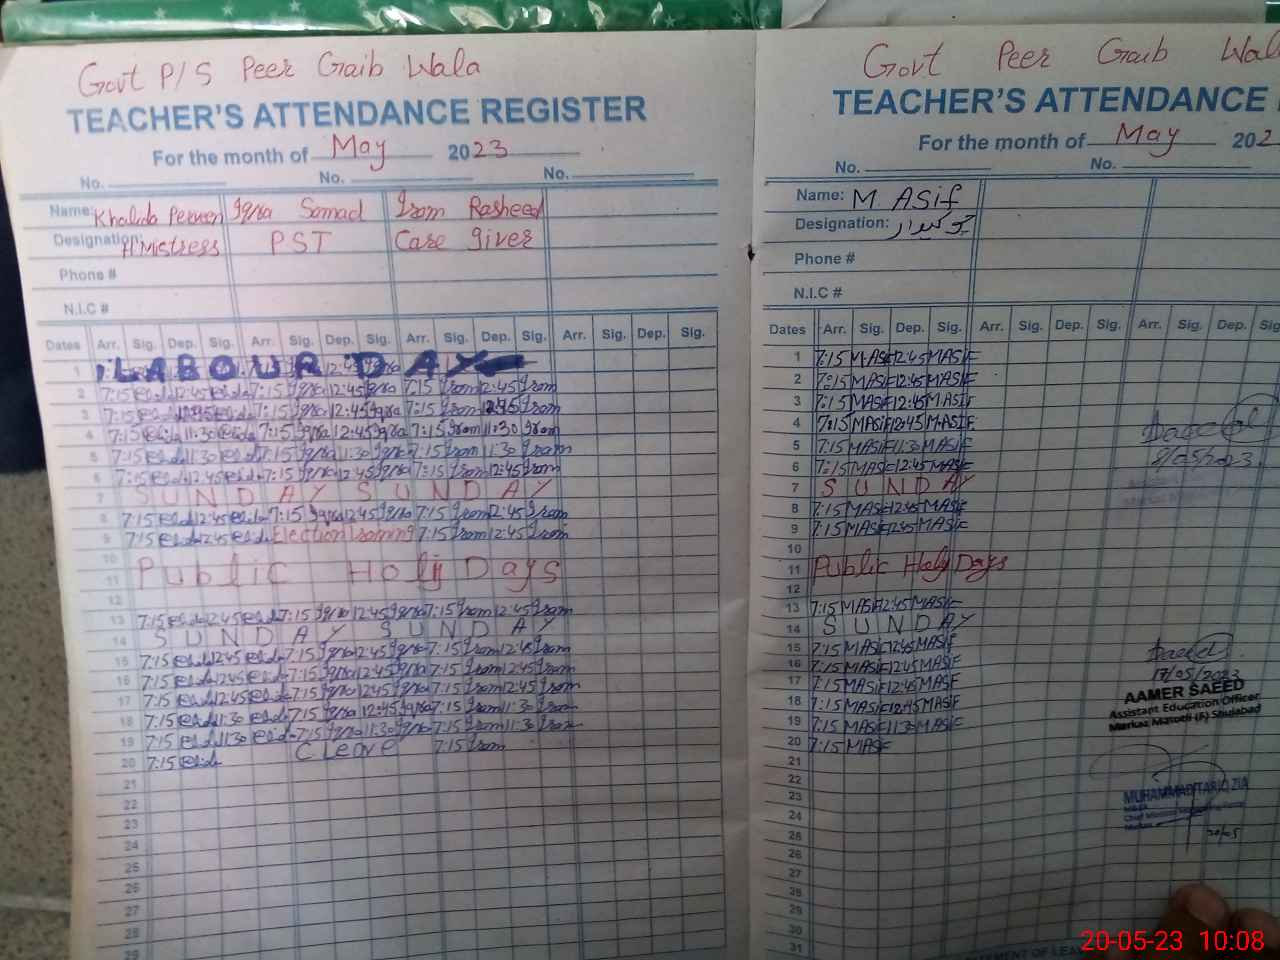 Govt P/S Peer Gaib Wala
TEACHER'S ATTENDANCE REGISTER
For the month of May 2023
No. No. No.
Name: Khalida Perveen Iqra Samad Irom Rasheed
Designation: H/Mistress PST Care giver
Phone #
N.I.C #
Dates Arr. Sig. Dep. Sig. Arr. Sig. Dep. Sig. Arr. Sig. Dep. Sig. Arr. Sig. Dep. Sig.
1 LABOUR DAY
2 7:15 12:45 7:15 Iqra 12:45 Iqra 7:15 Irom 12:45 Irom
3 7:15 7:15 Iqra 12:45 Iqra 7:15 Irom 12:45 Irom
4 7:15 11:30 7:15 Iqra 12:45 Iqra 7:15 Irom 11:30 Irom
5 7:15 11:30 7:15 Iqra 11:30 Iqra 7:15 Irom 11:30 Irom
6 7:15 12:45 7:15 Iqra 12:45 Iqra 7:15 Irom 12:45 Irom
7 SUNDAY SUNDAY
8 7:15 12:45 7:15 Iqra 12:45 Iqra 7:15 Irom 12:45 Irom
9 7:15 12:45 Election Training 7:15 Irom 12:45 Irom
10
11 Public Holy Days
12
13 7:15 12:45 7:15 Iqra 12:45 Iqra 7:15 Irom 12:45 Irom
14 SUNDAY SUNDAY
15 7:15 12:45 7:15 Iqra 12:45 Iqra 7:15 Irom 12:45 Irom
16 7:15 12:45 7:15 Iqra 12:45 Iqra 7:15 Irom 12:45 Irom
17 7:15 12:45 7:15 Iqra 12:45 Iqra 7:15 Irom 12:45 Irom
18 7:15 11:30 7:15 Iqra 12:45 Iqra 7:15 Irom 11:30 Irom
19 7:15 11:30 7:15 Iqra 11:30 Iqra 7:15 Irom 11:30 Irom
20 7:15 C Leave 7:15 Irom
21
22
23
24
25
26
27
28
29
Govt Peer Gaib Wal
TEACHER'S ATTENDANCE
For the month of May 202
No. No.
Name: M ASif
Designation: چوکیدار
Phone #
N.I.C #
Dates Arr. Sig. Dep. Sig. Arr. Sig. Dep. Sig. Arr. Sig. Dep. Sig
1 7:15 MASIF 12:45 MASIF
2 7:15 MASIF 12:45 MASIF
3 7:15 MASIF 12:45 MASIF
4 7:15 MASIF 12:45 MASIF
5 7:15 MASIF 11:30 MASIF
6 7:15 MASIF 12:45 MASIF
7 SUNDAY
8 7:15 MASIF 12:45 MASIF
9 7:15 MASIF 12:45 MASIF
10
11 Public Holy Days
12
13 7:15 MASIF 12:45 MASIF
14 SUNDAY
15 7:15 MASIF 12:45 MASIF
16 7:15 MASIF 12:45 MASIF
17 7:15 MASIF 12:45 MASIF
18 7:15 MASIF 12:45 MASIF
19 7:15 MASIF 11:30 MASIF
20 7:15 MASIF
21
22
23
24
25
26
27
28
29
30
31
9/05/2023
17/05/2023
AAMER SAEED
Assistant Education Officer
Markaz Matotli (A) Shujabad
MUHAMMAD TARIQ ZIA
20/05
20-05-23 10:08